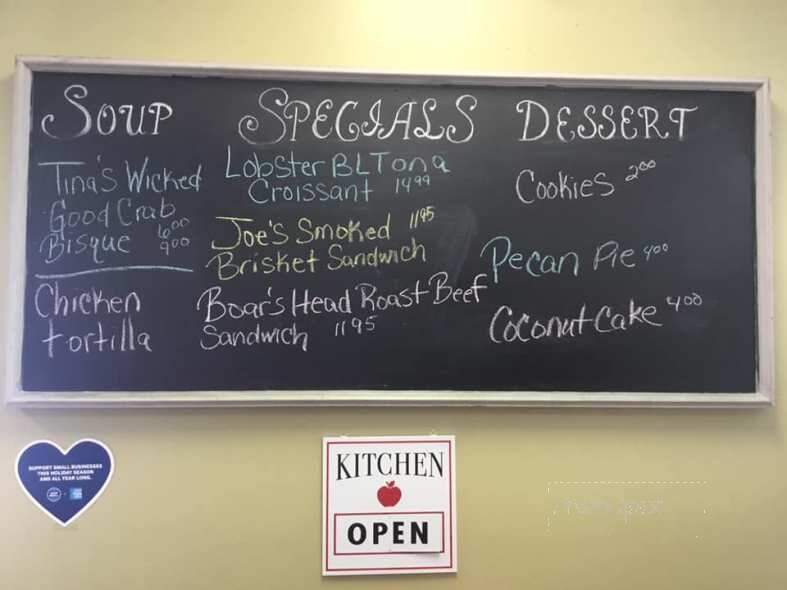 SOUP
Tina's Wicked
Good Crab
Bisque 6.00
9.00
Chicken
tortilla
SPECIALS
Lobster BLT on a
Croissant 14.99
Joe's Smoked 11.95
Brisket Sandwich
Boar's Head Roast Beef
Sandwich 11.95
DESSERT
Cookies 2.00
Pecan Pie 4.00
Coconut Cake 4.00
SUPPORT SMALL BUSINESSES
THIS HOLIDAY SEASON
AND ALL YEAR LONG.
KITCHEN
OPEN